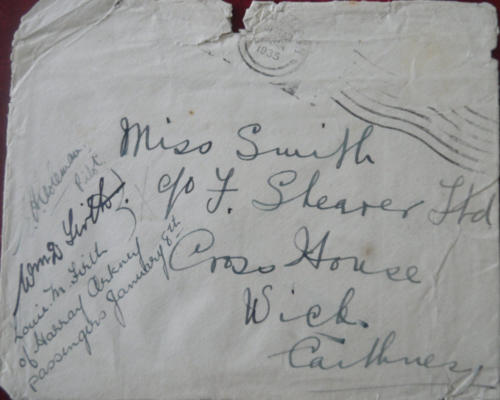 1935
Miss Smith
c/o F. Shearer Ltd
Cross House
Wick.
Caithness.
A. Coleman
Pilot.
Wm D Firth
Louie M. Firth
of Harray Orkney
passengers January 8th